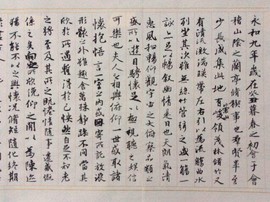 永和九年歲在癸丑暮春之初會于會
稽山陰之蘭亭脩禊事也羣賢畢至
少長咸集此地有崇山峻領茂林脩竹又
有清流激湍暎帶左右引以為流觴曲水
列坐其次雖無絲竹管弦之盛一觴一
詠亦足以暢敘幽情是日也天朗氣清
惠風和暢仰觀宇宙之大俯察品類之
盛所以遊目騁懷足以極視聽之娛信
可樂也夫人之相與俯仰一世或取諸
懷抱悟言一室之內或因寄所託放浪
形骸之外雖趣舍萬殊靜躁不同當其
欣於所遇蹔得於己快然自足不知老
之將至及其所之既惓情隨事遷感慨
係之矣向之所欣俛仰之間以為陳迹
猶不能不以之興懷況脩短隨化終期